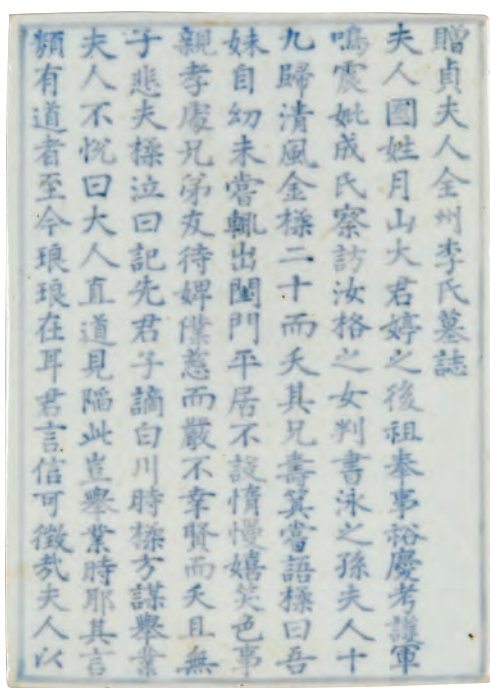 贈貞夫人全州李氏墓誌
夫人國姓月山大君婷之後祖奉事裕慶考護軍
鳴震妣成氏察訪汝格之女判書泳之孫夫人十
九歸清風金䅵二十而夭其兄壽箕嘗語䅵曰吾
妹自幼未嘗輒出閨門平居不設惰慢嬉笑色事
親孝處兄弟友待婢僕慈而嚴不幸賢而夭且無
子悲夫䅵泣曰記先君子謫白川時䅵方謀舉業
夫人不悅曰大人直道見陷此豈舉業時耶其言
頗有道者至今琅琅在耳君言信可徵㢤夫人以